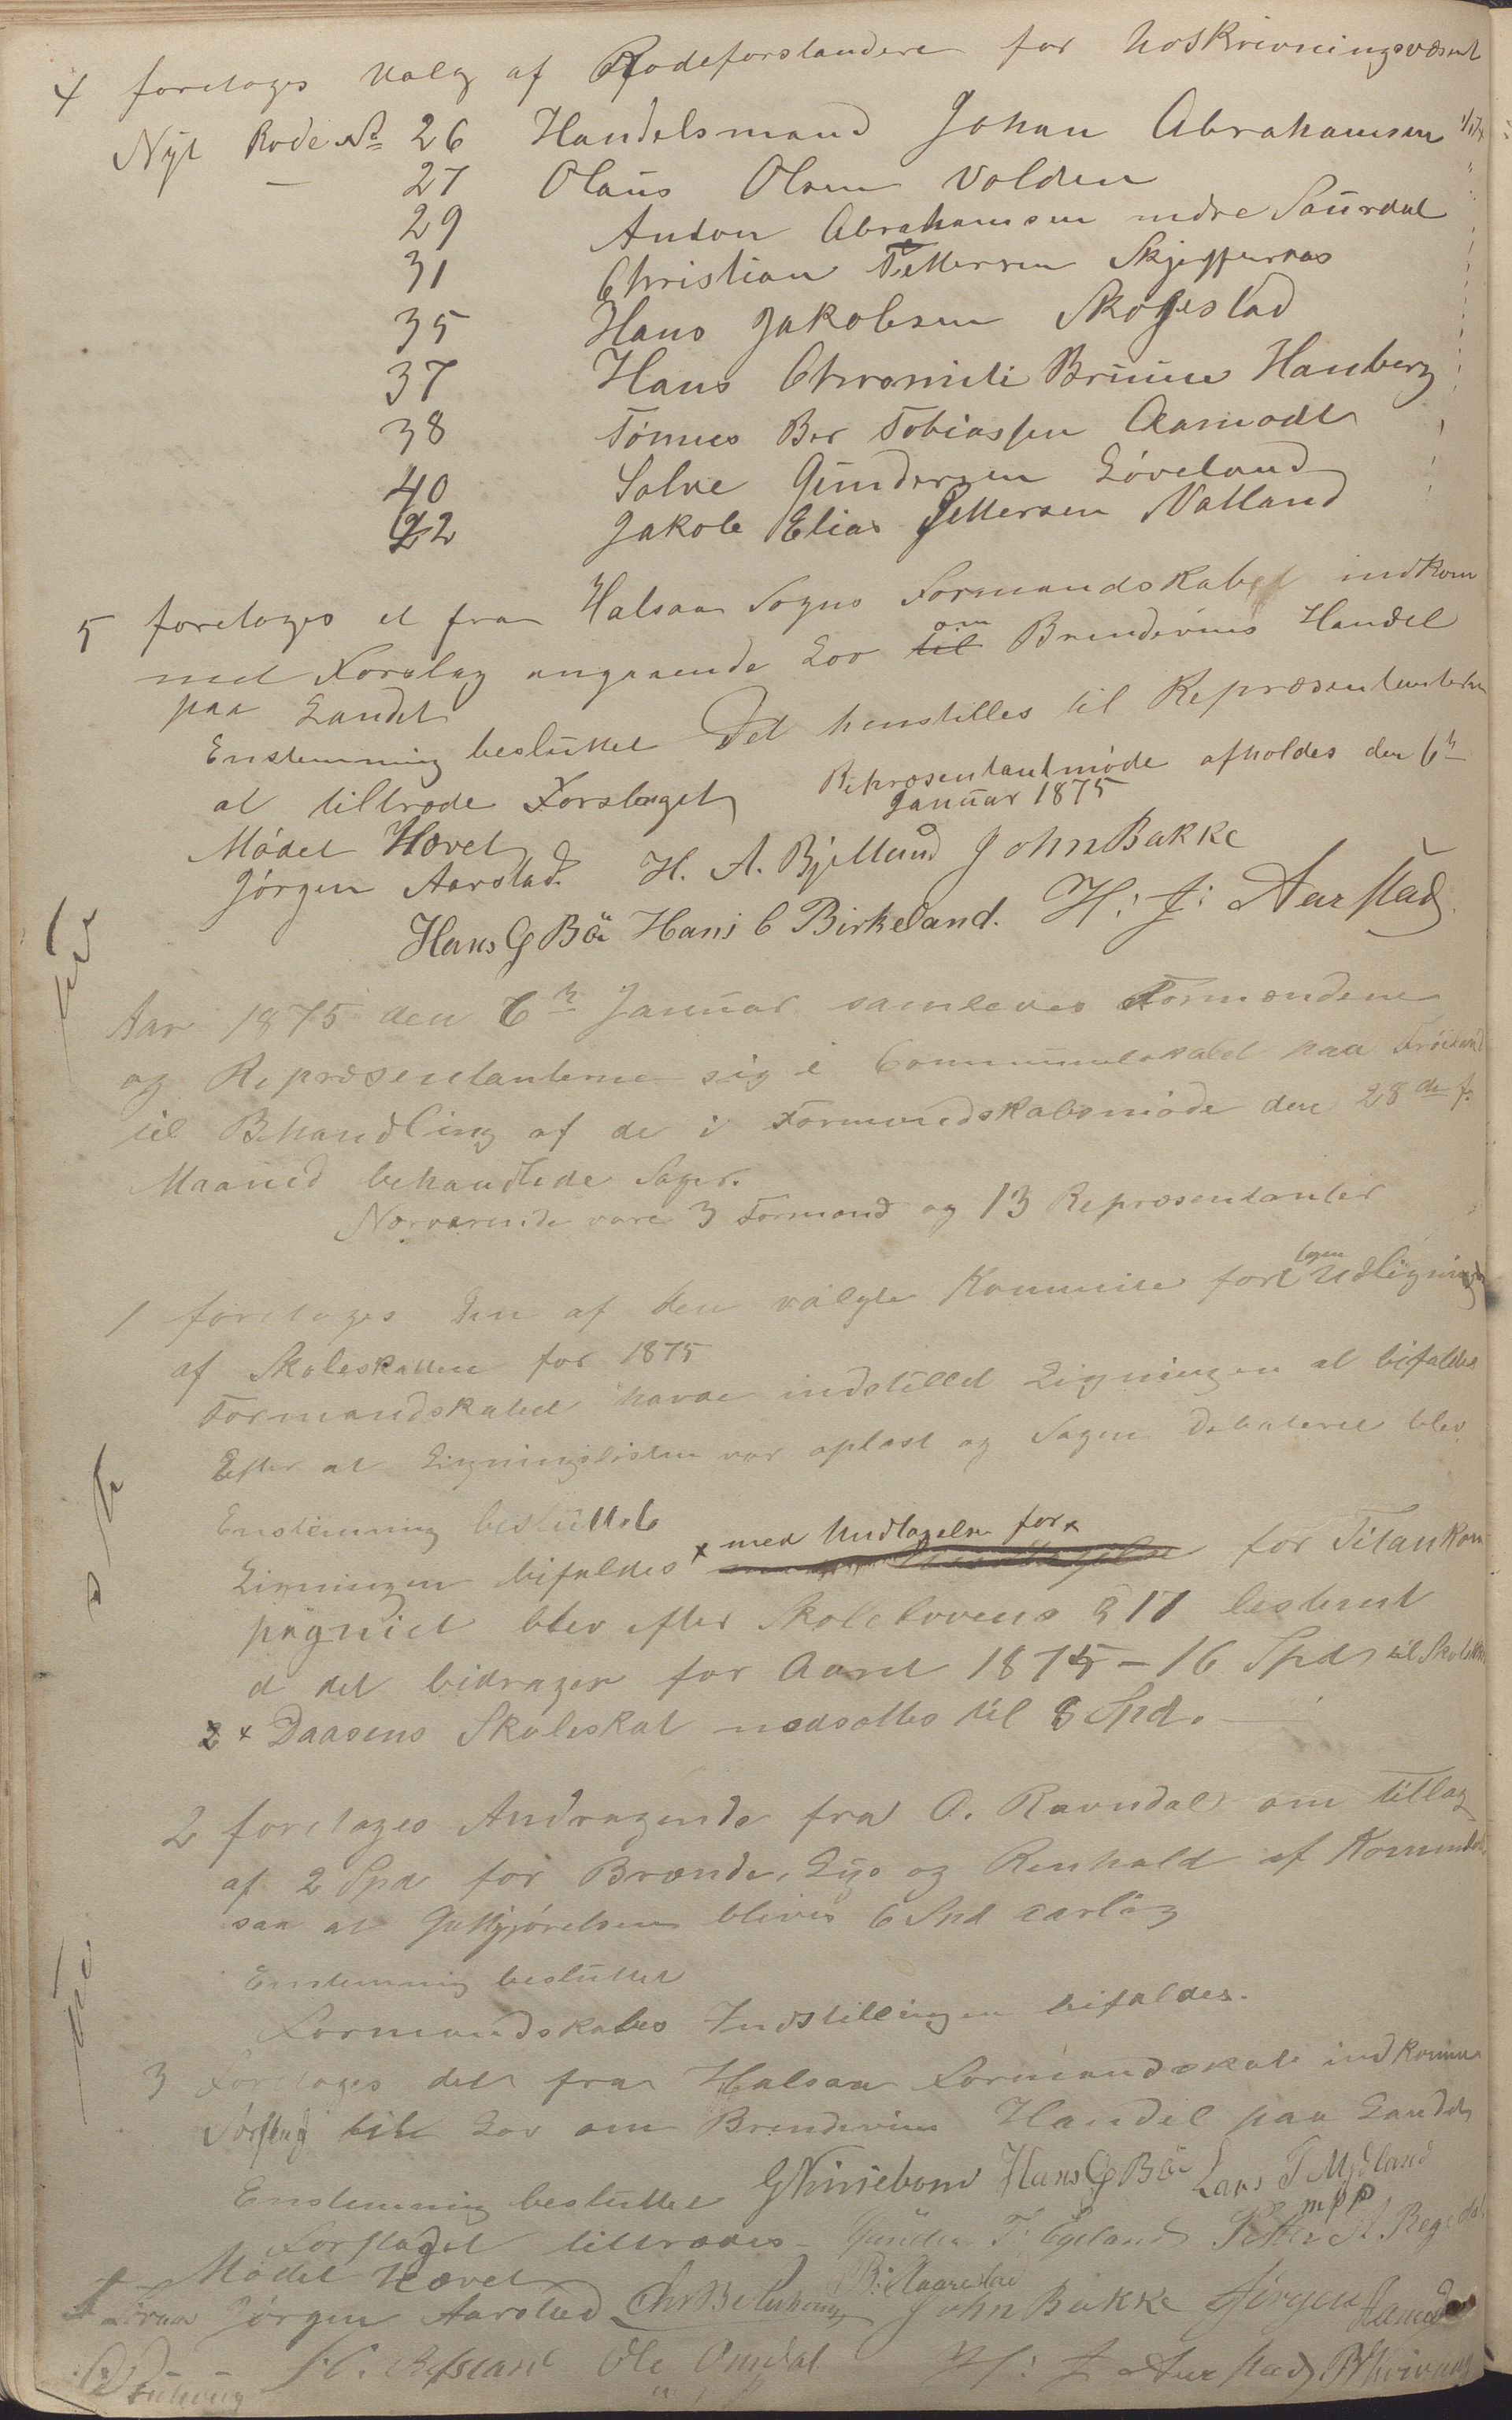 4 foretoges Valg af Rodeforstandere for Udskrivningsvæsenet
Nyt Rode No 26 Handelsmand Johan Abrahamsen
— 27 Olaus Olsen Volden
29 Anton Abrahamsen nedre Saurdal
31 Christian Pettersen
35 Hans Jakobsen Skogestad
37 Hans Bruun Hauberg
38 Tønnes Ber Tobiassen Aamodt
40 Salve Gundersen Løveland
22 Jakob Elias Pettersen Natland
5 foretoges et fra Halsaa Sogns Formandskabet indkom
met Forslag angaaende Lov til om Brendeviins Handel
paa Landet
Enstemmig besluttet Det henstilles til Repræsentanterne
at tiltræde Forslaget Repræsentantmøde afholdes den 6te
Januar 1875
Mødet Hævet
Jørgen Aarstad. H. A. Bjelland John Bakke
Hans G Bøe Hans C Birkeland. H: J: Aarstad
Aar 1875 den 6te Januar samledes Formændene
og Repræsentanterne sig i Communelokalet paa Frøiland
til Behandling af de i Formandskabsmøde den 28de f.
Maaned behandlede Sager.
Nærværende vare 3 Formænd og 13 Repræsentanter
1 foretoges Den af den valgte Kommite Udligning
af Skoleskatten for 1875
Formandskabet havde indstillet Ligningen at bifaldes
Efter at Ligningslisten var oplæst og Sagen debateret blev
Enstemmig besluttet
Ligningen bifaldes x med Undtagelse for x for Titankom
pagniet blev efter Skolelovens § 17 bestemt
at det bidrager for Aaret 1875 – 16 Spd til
2 x Daasens Skoleskat nedsættes til 8 Spd.
2 foretoges Andragende fra O. Ravndal om tillæg
af 2 Spd for Brænde, Lys og Renhold af
saa at Godtgjørelsen bliver 6 Spd aarlig
Enstemmig besluttet
Formandskabets Indstillingen bifaldes.
3 Foretoges det fra Halsaa Formandskab indkomne
Forslag til Lov om Brendeviins Handel paa Landet
Enstemmig besluttet Hans G Bøe Lars T Mydland
mpp
Forslaget tiltrædes Gunder T. Egeland Petter A. Regedal
Mødet hævet
Jørgen Aarstad John Bakke Jørgen
Ole Omdal H: J Aarstad